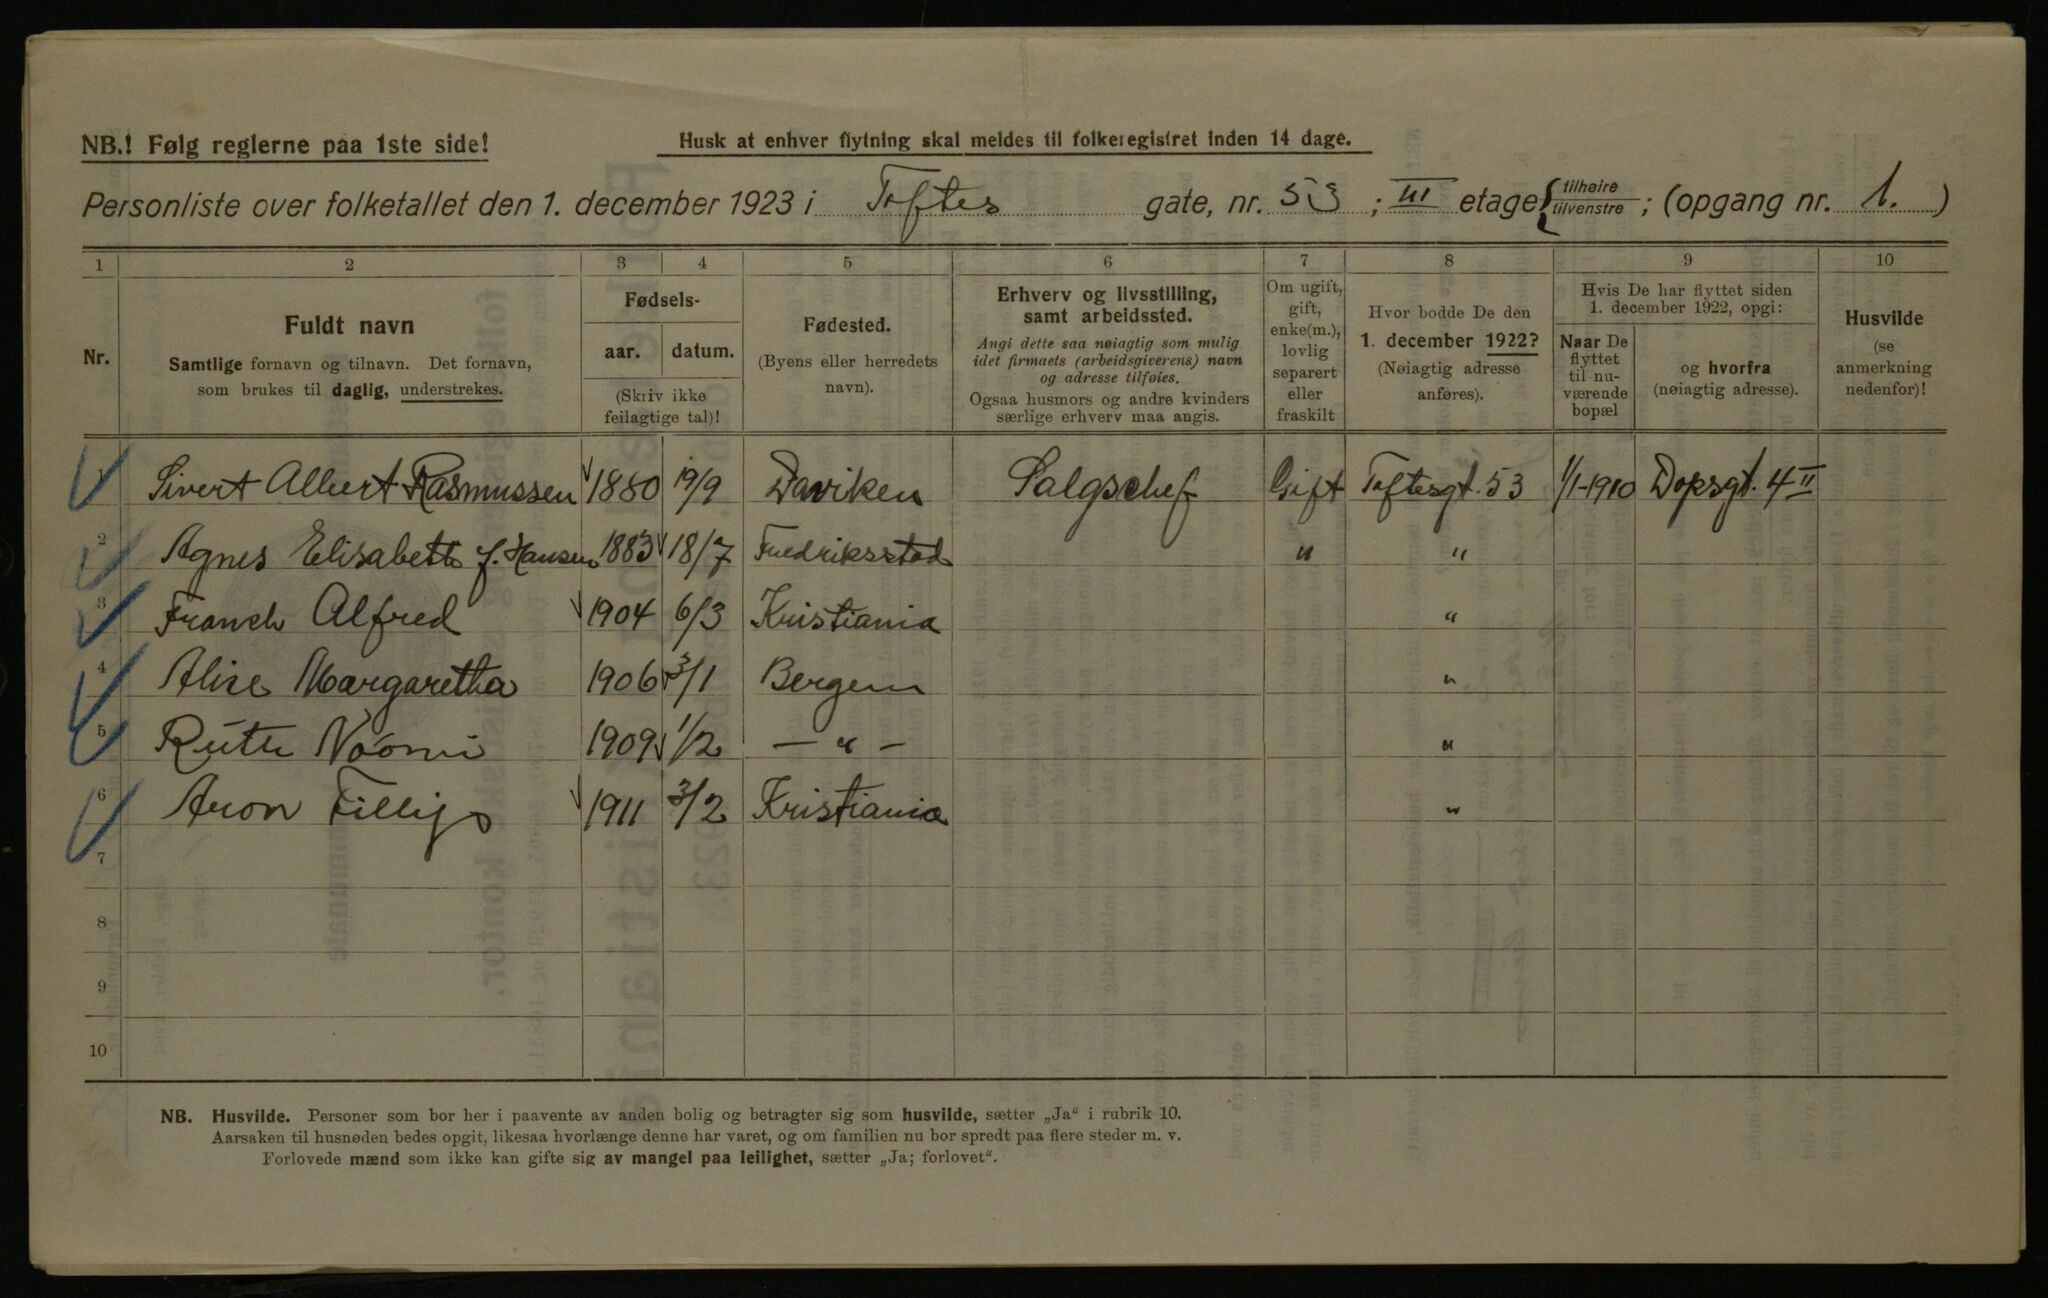 NB.! Følg reglerne paa 1ste side!
Husk at enhver flytning skal meldes til folkeregistret inden 14 dage.
Personliste over folketallet den 1. december 1923 i Toftes gate, nr. 53 ; III etage { tilhøire / tilvenstre ; (opgang nr. 1. )
1 2 3 4 5 6 7 8 9 10
Nr.
Fuldt navn
Samtlige fornavn og tilnavn. Det fornavn,
som brukes til daglig, understrekes.
Fødsels-
aar. datum.
(Skriv ikke
feilagtige tal)!
Fødested.
(Byens eller herredets
navn).
Erhverv og livsstilling,
samt arbeidssted.
Angi dette saa nøiagtig som mulig
idet firmaets (arbeidsgiverens) navn
og adresse tilføies.
Ogsaa husmors og andre kvinders
særlige erhverv maa angis.
Om ugift,
gift,
enke(m.),
lovlig
separert
eller
fraskilt
Hvor bodde De den
1. december 1922?
(Nøiagtig adresse
anføres).
Hvis De har flyttet siden
1. december 1922, opgi:
Naar De
flyttet
til nu-
værende
bopæl
og hvorfra
(nøiagtig adresse).
Husvilde
(se
anmerkning
nedenfor)!
1 Sivert Albert Rasmussen 1880 19/9 Daviken Salgschef Gift Toftesgt. 53 1/1-1910 Dopsgt. 4 II
2 Agnes Elisabeth f. Hansen 1883 18/7 Fredriksstad " "
3 Franch Alfred 1904 6/3 Kristiania "
4 Alise Margaretha 1906 3/1 Bergen "
5 Ruth Noomi 1909 1/2 — " — "
6 Aron Fillip 1911 3/2 Kristiania "
7
8
9
10
NB. Husvilde. Personer som bor her i paavente av anden bolig og betragter sig som husvilde, sætter „Ja“ i rubrik 10.
Aarsaken til husnøden bedes opgit, likesaa hvorlænge denne har varet, og om familien nu bor spredt paa flere steder m. v.
Forlovede mænd som ikke kan gifte sig av mangel paa leilighet, sætter „Ja; forlovet“.